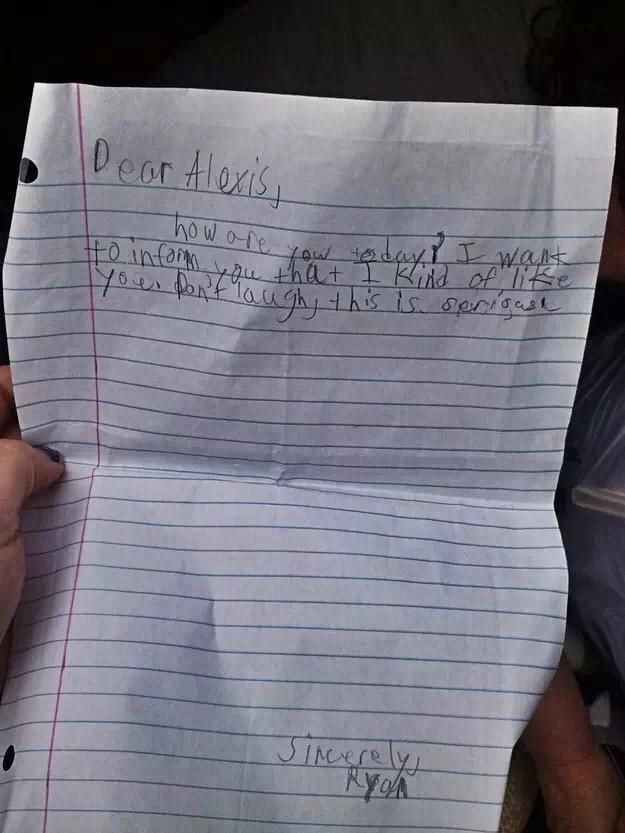 Dear Alexis,
how are you today? I want
to inform you that I kind of like
you. Don't laugh, this is serious
Sincerely,
Ryan